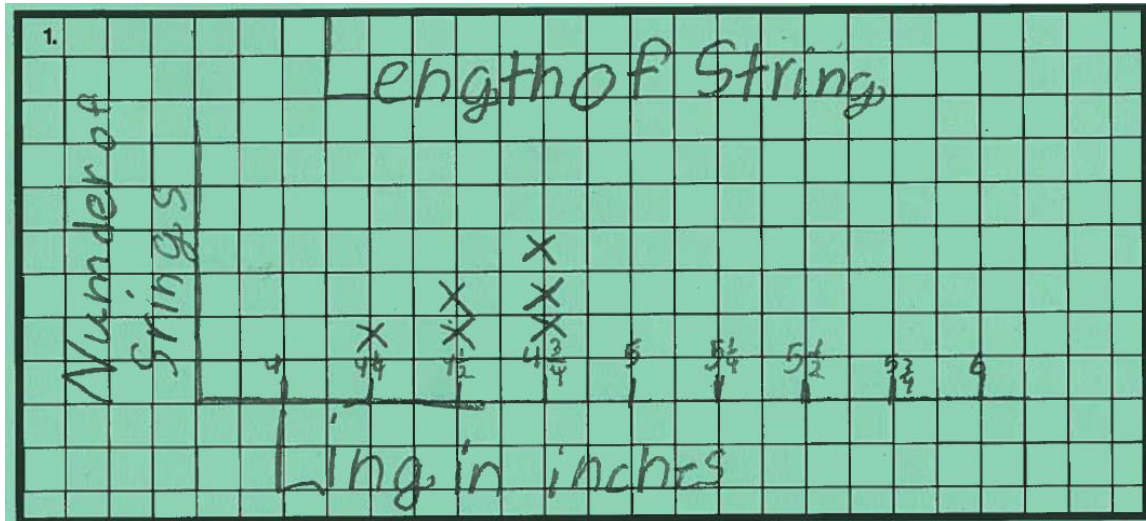 1.
Length of String
Numder of
Srings
4 4 1/4 4 1/2 4 3/4 5 5 1/4 5 1/2 5 3/4 6
Ling in inches